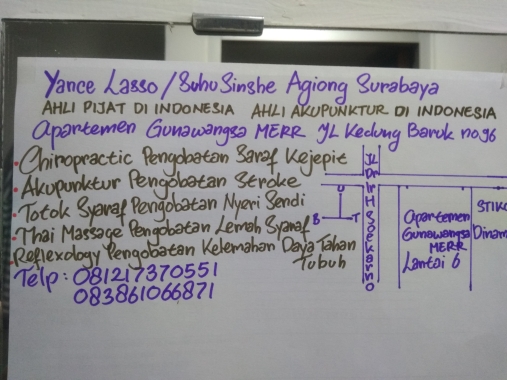 Yance Lasso / Suhu Sinshe Agiong Surabaya
AHLI PIJAT DI INDONESIA AHLI AKUPUNKTUR DI INDONESIA
Apartemen Gunawangsa MERR JL Kedung Baruk no 96
Chiropractic Pengobatan Saraf Kejepit
Akupunktur Pengobatan Stroke
Totok Syaraf Pengobatan Nyeri Sendi
Thai Massage Pengobatan Lemah Syaraf
Reflexology Pengobatan Kelemahan Daya Tahan
Tubuh
Telp: 081217370551
083861066871
U
B T
JL Dr Ir H Soekarno
Apartemen
Gunawangsa
MERR
Lantai 6
STIKO
Dinam